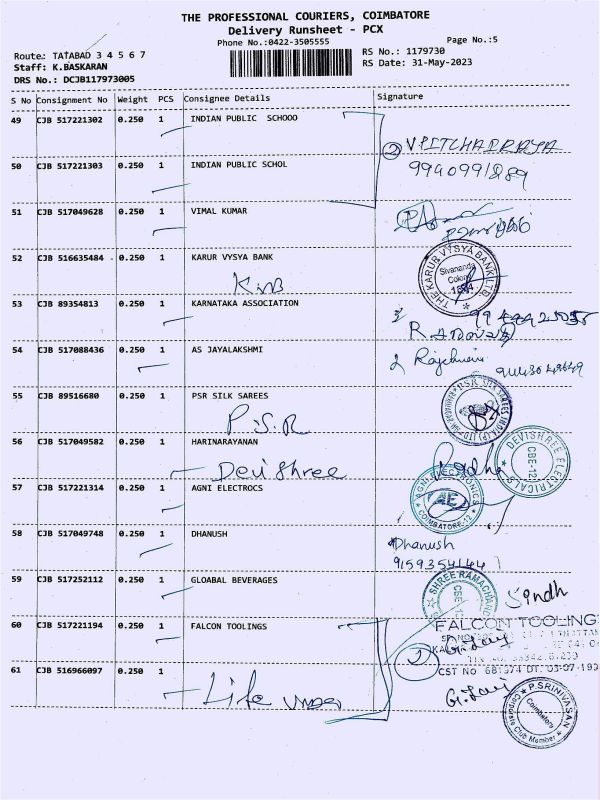 THE PROFESSIONAL COURIERS, COIMBATORE
Delivery Runsheet - PCX
Phone No.:0422-3505555
Page No.:5
Route: TATABAD 3 4 5 6 7
RS No.: 1179730
Staff: K.BASKARAN
RS Date: 31-May-2023
DRS No.: DCJB117973005
S No Consignment No Weight PCS Consignee Details Signature
49 CJB 517221302 0.250 1 INDIAN PUBLIC SCHOOO
2 VPITCHAIRAJA
9940991889
50 CJB 517221303 0.250 1 INDIAN PUBLIC SCHOL
51 CJB 517049628 0.250 1 VIMAL KUMAR
52 CJB 516635484 0.250 1 KARUR VYSYA BANK
KVB
THE KARUR VYSYA BANK LTD
Sivananda
Colony
53 CJB 89354813 0.250 1 KARNATAKA ASSOCIATION
54 CJB 517088436 0.250 1 AS JAYALAKSHMI
55 CJB 89516680 0.250 1 PSR SILK SAREES
P.S.R
56 CJB 517049582 0.250 1 HARINARAYANAN
Devishree
Radha
DEVISHREE ELECTRICALS
CBE-12
57 CJB 517221314 0.250 1 AGNI ELECTROCS
AGNI ELECTRONICS
AE
COIMBATORE-12
58 CJB 517049748 0.250 1 DHANUSH
Dhanush
9159354144
59 CJB 517252112 0.250 1 GLOABAL BEVERAGES
SHREE RAMACHAND
Sindh
60 CJB 517221194 0.250 1 FALCON TOOLINGS
FALCON TOOLING
2
61 CJB 516966097 0.250 1
Life
P.SRINIVASAN
Coimbatory
Corporate Club Member